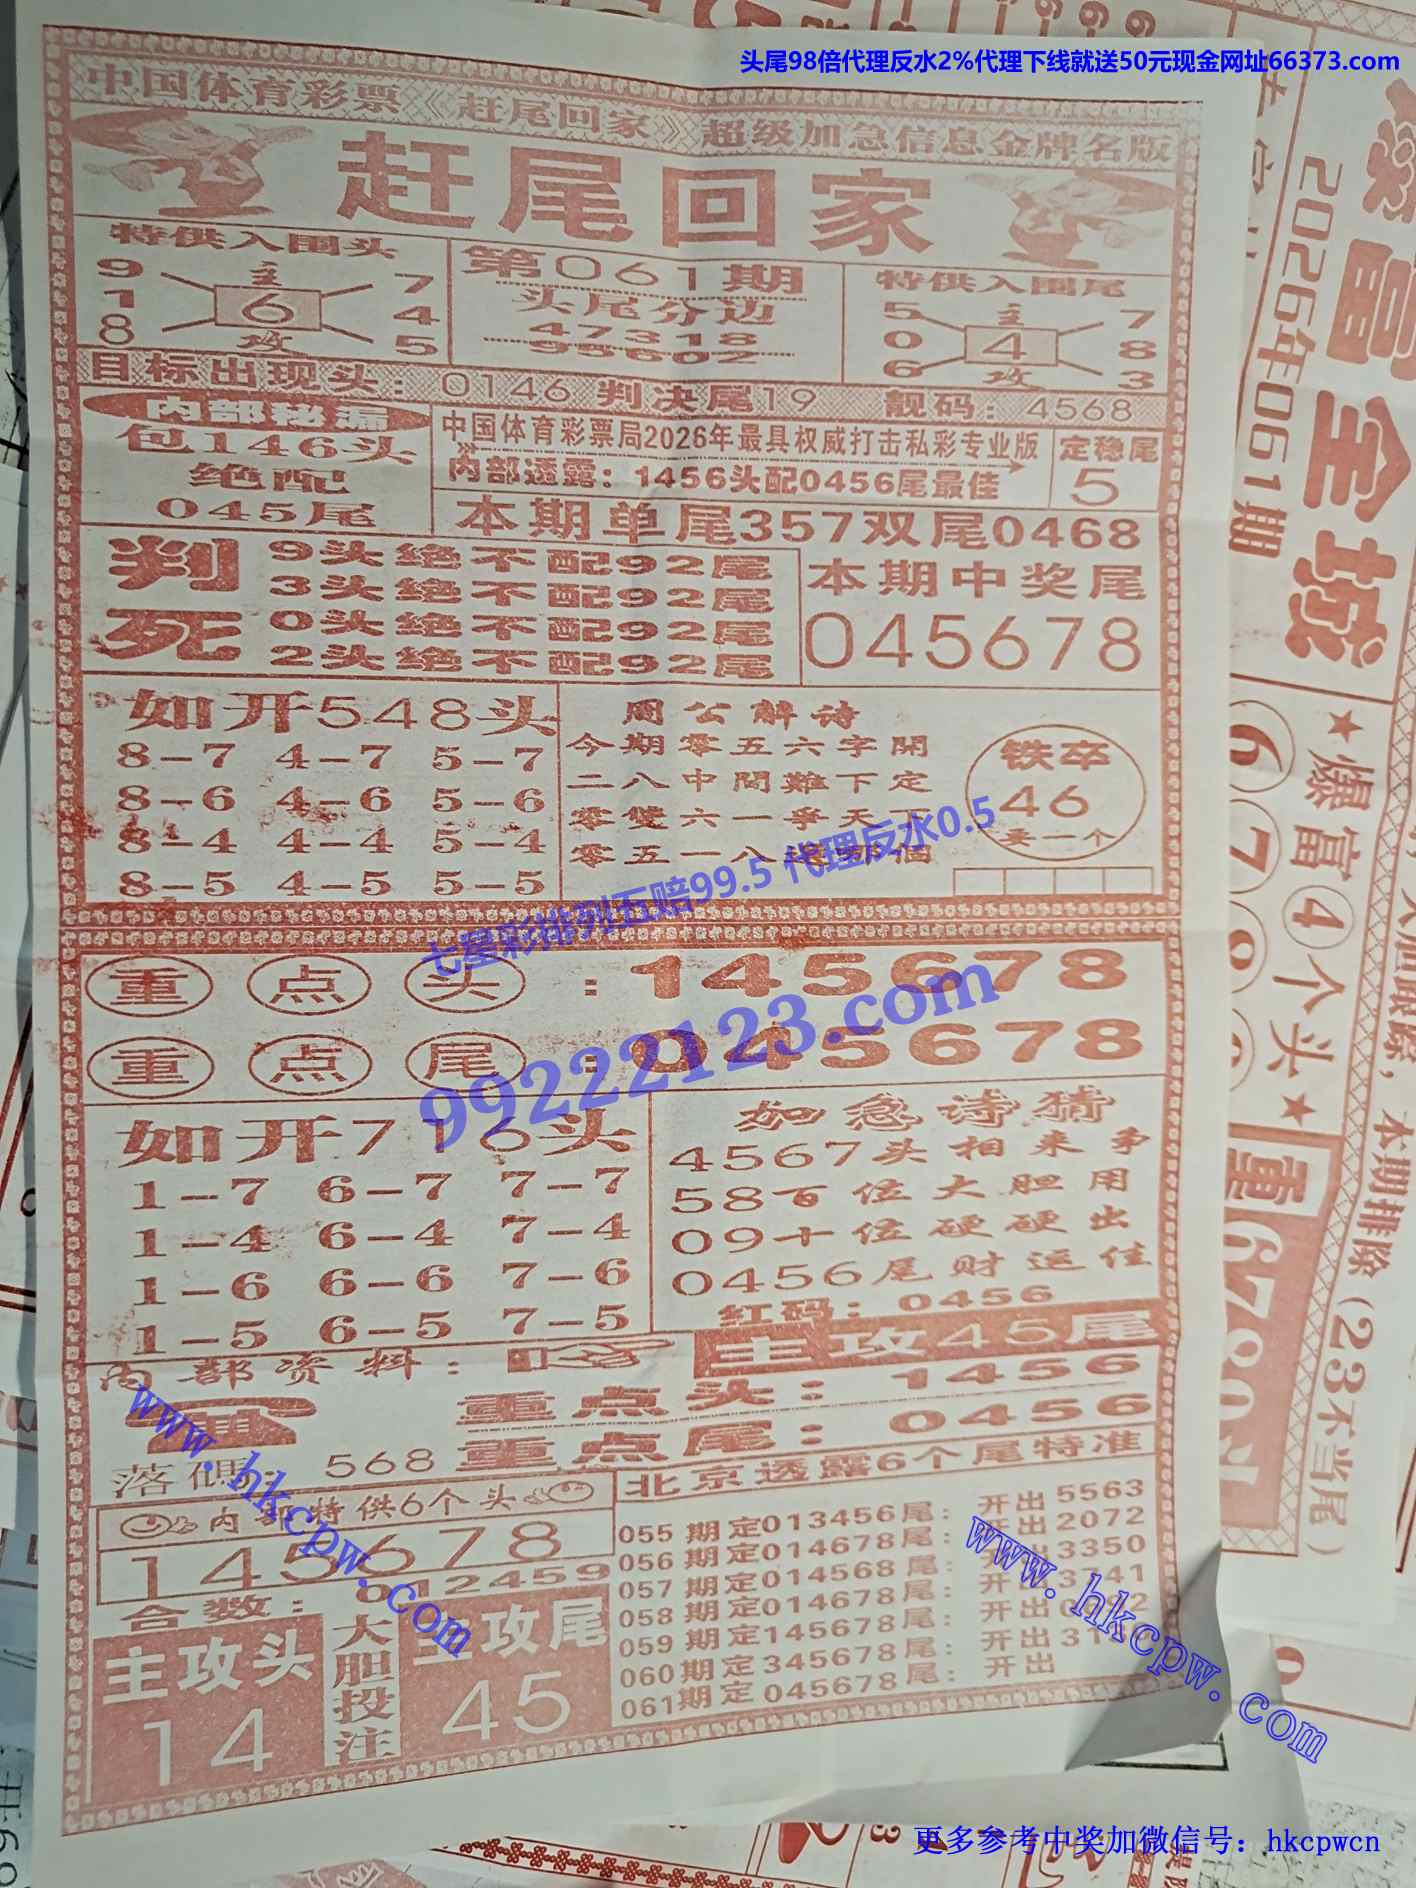 头尾98倍代理反水2%代理下线就送50元现金网址66373.com
中国体育彩票《赶尾回家》超级加急信息金牌名版
赶尾回家
特供入围头
9 主 7
1 6 4
8 攻 5
第061期
头尾分边
47318
95602
特供入围尾
5 主 7
0 4 8
6 攻 3
目标出现头：0146 判决尾19 靓码：4568
内部秘漏
包146头
绝配
045尾
中国体育彩票局2026年最具权威打击私彩专业版
内部透露：1456头配0456尾最佳
定稳尾
5
本期单尾357双尾0468
判死
9头绝不配92尾
3头绝不配92尾
0头绝不配92尾
2头绝不配92尾
本期中奖尾
045678
如开548头
8-7 4-7 5-7
8-6 4-6 5-6
8-4 4-4 5-4
8-5 4-5 5-5
周公解诗
今期零五六字開
二八中間難下定
零雙六一爭天下
零五一八
铁卒
46
卖一个
七星彩排列五赔99.5 代理反水0.5
99222123.com
重点头：145678
重点尾：045678
如开716头
1-7 6-7 7-7
1-4 6-4 7-4
1-6 6-6 7-6
1-5 6-5 7-5
加急诗猜
4567头相来争
58百位大胆用
09十位硬硬出
0456尾财运佳
红码：0456
主攻45尾
内部资料：
重点头：1456
重点尾：0456
落碼：568
内部特供6个头
145678
合数：012459
主攻头
14
大胆投注
主攻尾
45
北京透露6个尾特准
055期定013456尾：开出5563
056期定014678尾：开出2072
057期定014568尾：开出3350
058期定014678尾：开出3741
059期定145678尾：开出
060期定345678尾：开出
061期定045678尾：开出
www.hkcpw.com
www.hkcpw.com
2026年061期
富全城
★爆富④个头★
本期排除(23不当尾)
更多参考中奖加微信号：hkcpwcn